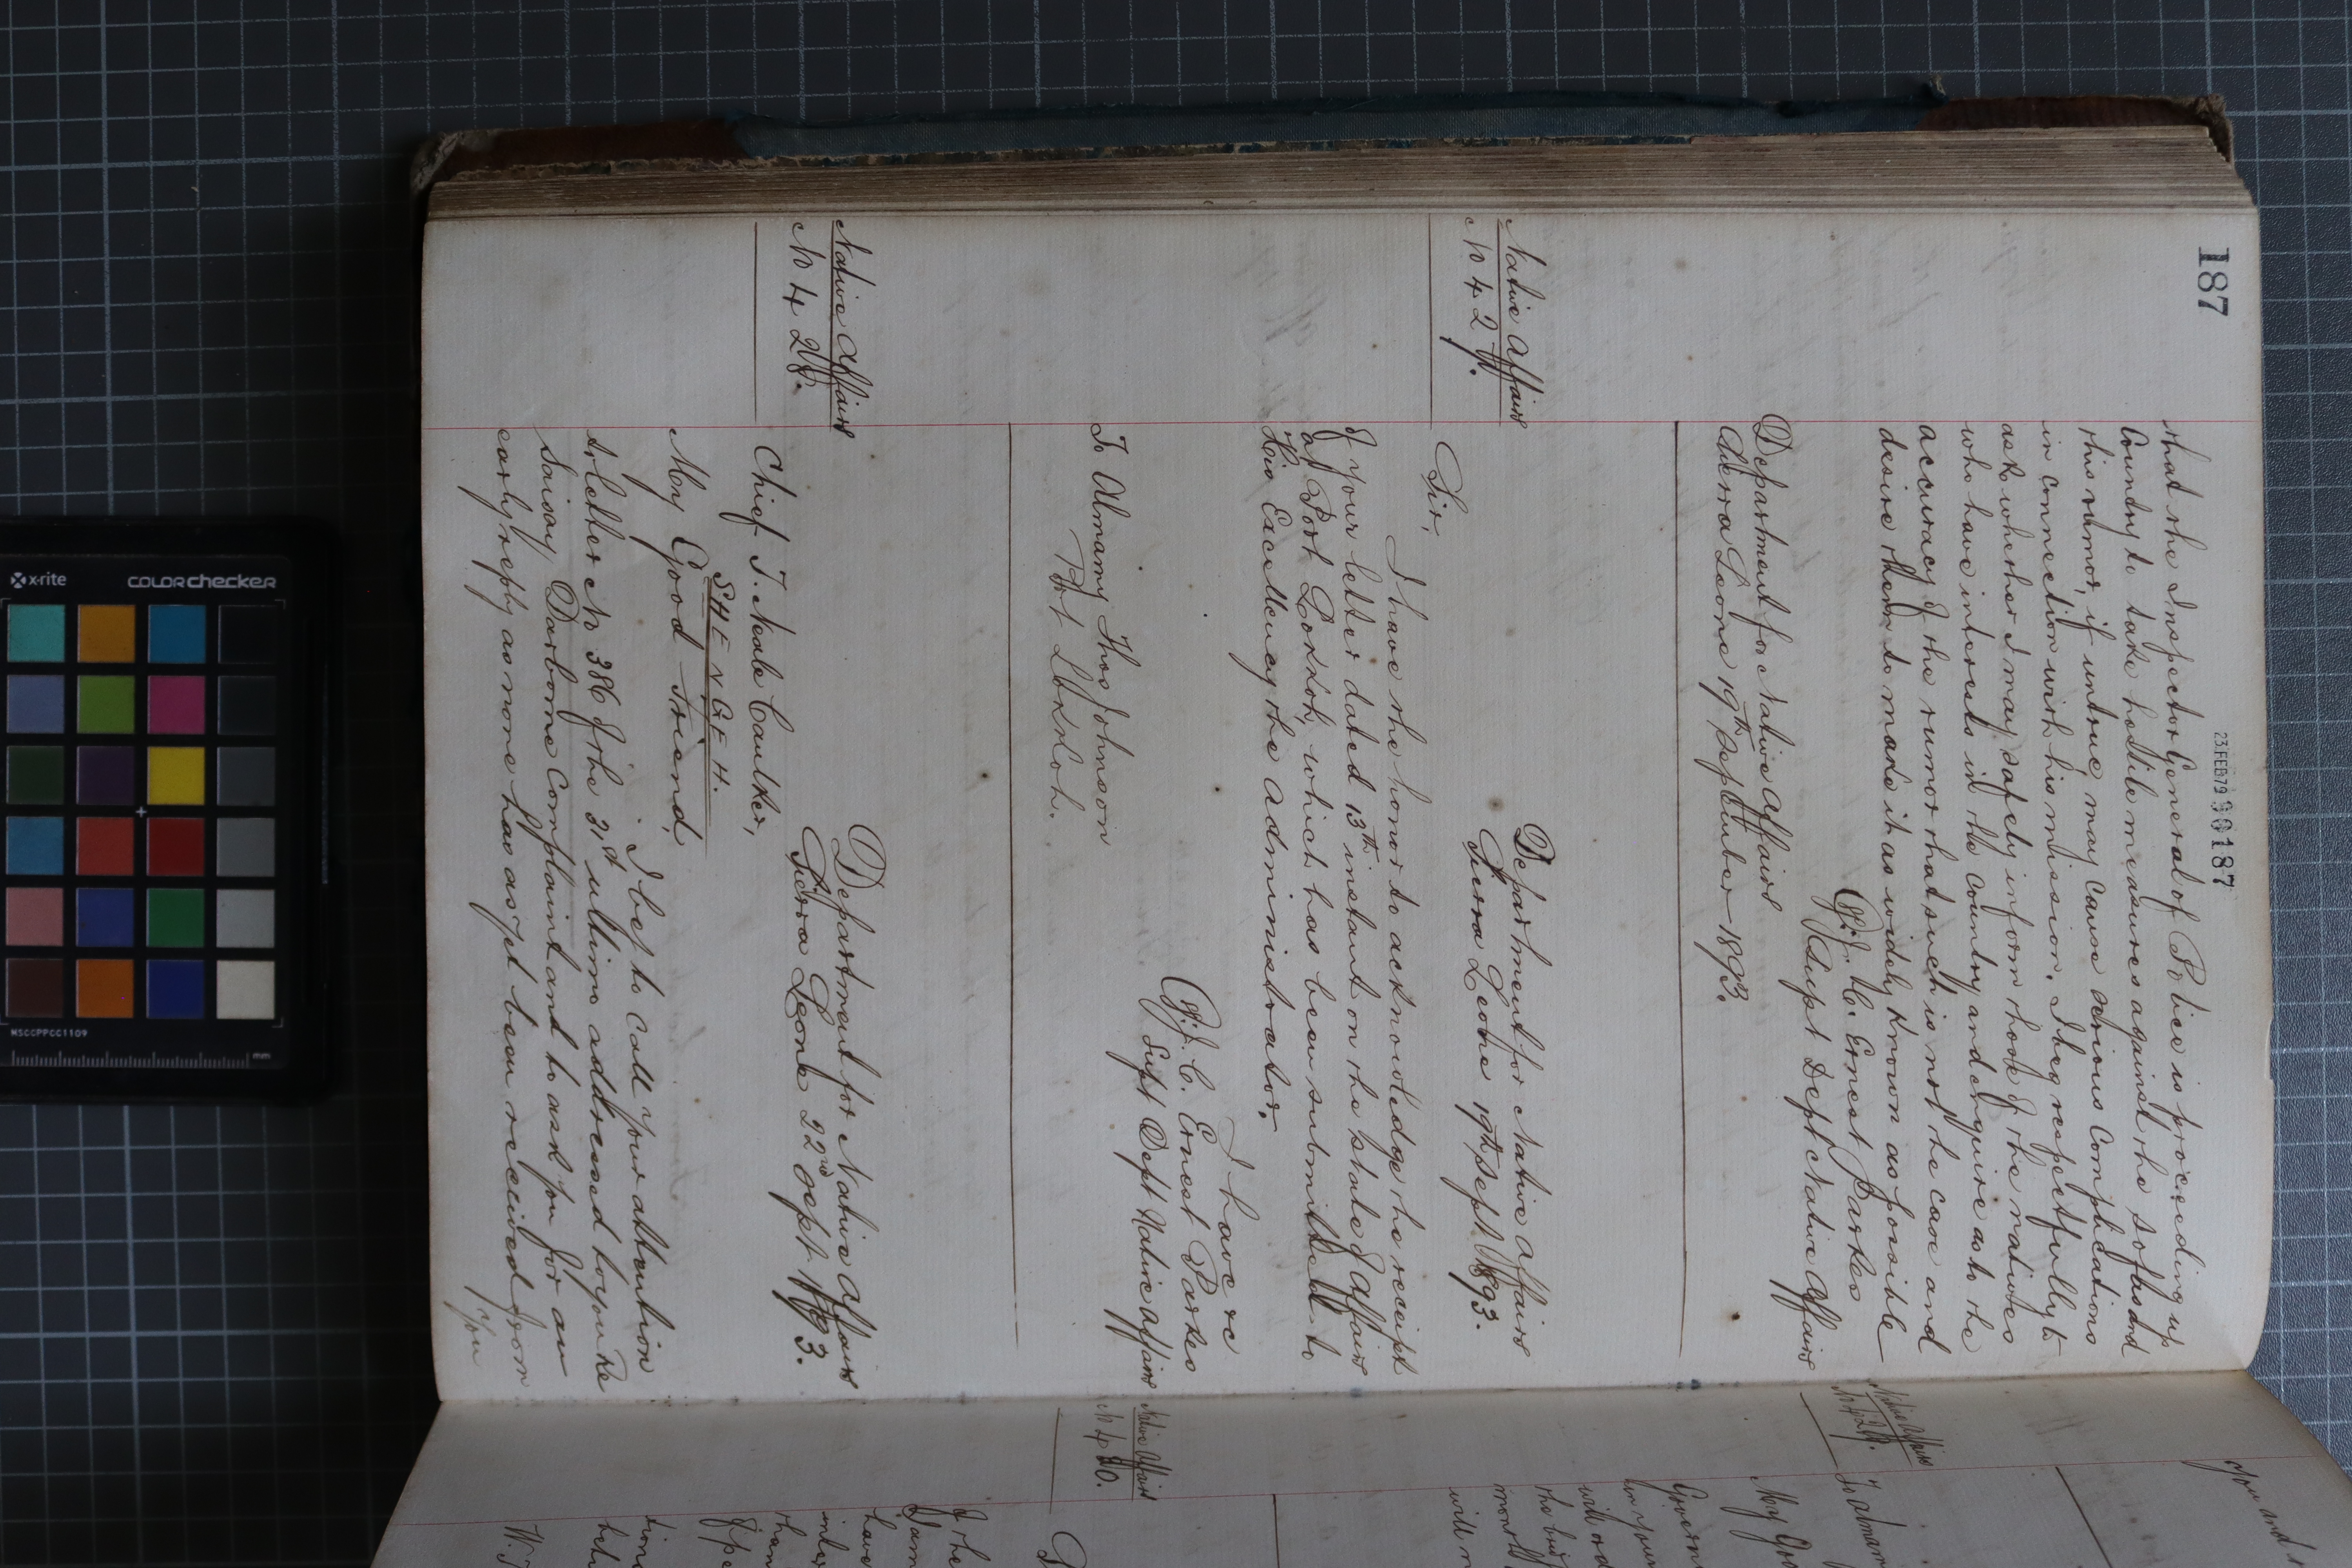 187
23 FEB 79 00187
that the Inspector General of Police is proceeding up
Country to take hostile measures against the Sofas and
this rumor, if untrue may cause serious complications
in connection with his mission. I beg respectfully to
ask whether I may safely inform those of the natives
who have interests in the country and enquire as to the
accuracy of the rumor that such is not the case and
desire them to make it as widely known as possible
J. C. Ernest Parkes
Supt Dept Native Affairs
Department for Native Affairs
Sierra Leone 19th September 1893.
Native Affairs
No 427.
Department for Native Affairs
Sierra Leone 19th Sept. 1893.
Sir,
I have the honor to acknowledge the receipt
of your letter dated 13th instant on the state of affairs
at Port Lokkoh, which has been submitted to
His Excellency the Administrator.
I have &c
J. C. Ernest Parkes
Supt Dept Native Affairs
To Almamy Thos Johnson
Port Lokkoh.
Native Affairs
No 428.
Department for Native Affairs
Sierra Leone 22nd Sept. 1893.
Chief T. Neale Caulker,
SHENGEH.
My Good Friend,
I beg to call your attention
to letter No 386 of the 31st ultimo addressed to you re
Darborne complaint and to ask you for an
early reply as none has as yet been received from
you
you and
Native Affairs
No 429.
To Almam
My Goo
Govern
in your
will
the
month
will
Native Affairs
No 430.
D
of the
Sam
have
inter
than
W. T